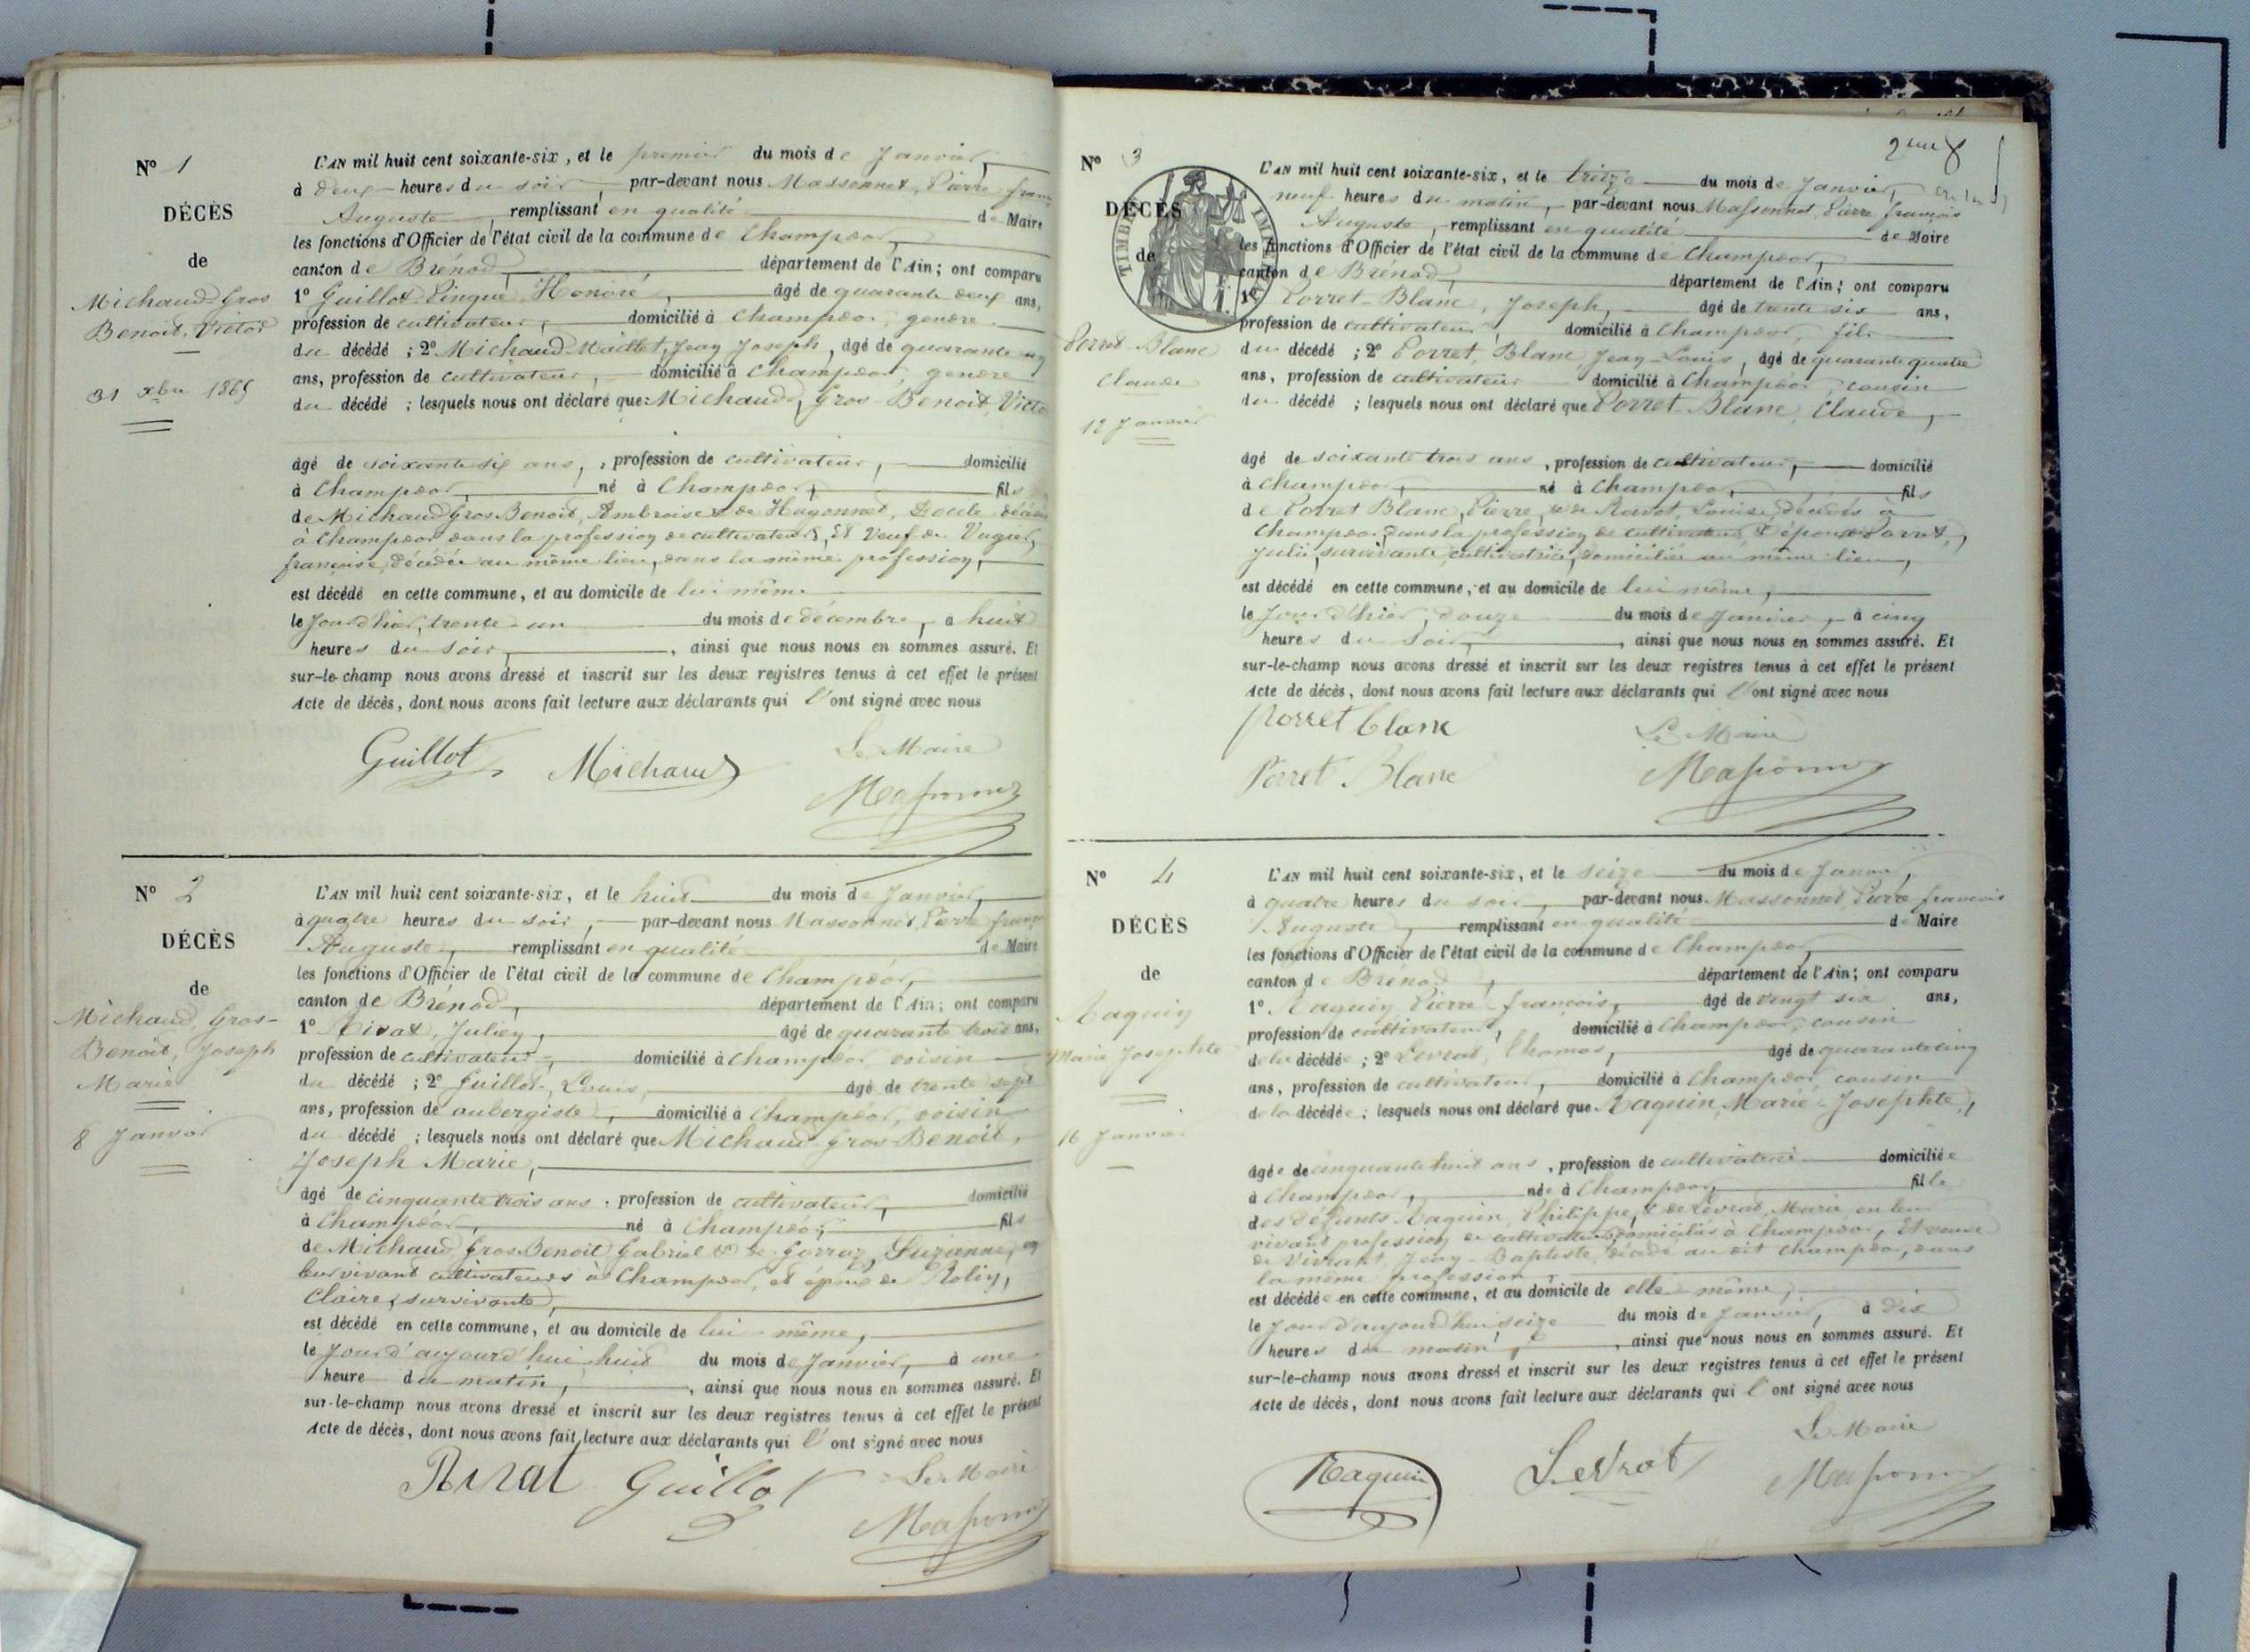 N° 1
DÉCÈS
de
Michaud-Gros
Benoit, Victor
31 xbre 1865
L'AN mil huit cent soixante-six, et le premier du mois de Janvier,
à deux heures du soir, par-devant nous Massonnet, Pierre
Auguste, remplissant en qualité de Maire
les fonctions d'Officier de l'état civil de la commune de Champdor,
canton de Brénod, département de l'Ain; ont comparu
1° Guillot Pingue, Honoré, âgé de quarante deux ans,
profession de cultivateur, domicilié à Champdor, gendre
du décédé; 2° Michaud Maillet, Jean Joseph, âgé de quarante un
ans, profession de cultivateur, domicilié à Champdor, gendre
du décédé; lesquels nous ont déclaré que Michaud, Gros-Benoit, Victor
âgé de soixante six ans, profession de cultivateur, domicilié
à Champdor, né à Champdor, fils
de Michaud Gros Benoit, Ambroise & de Hugonnet,
à Champdor dans la profession de cultivateurs, Et veuf de
française, décédée au même lieu, dans la même profession,
est décédé en cette commune, et au domicile de lui même
le Jour d'hier, trente-un du mois de décembre, à huit
heures du soir, ainsi que nous nous en sommes assuré. Et
sur-le-champ nous avons dressé et inscrit sur les deux registres tenus à cet effet le présent
Acte de décès, dont nous avons fait lecture aux déclarants qui l'ont signé avec nous
Guillot Michaud Le Maire
Massonnet
N° 2
DÉCÈS
de
Michaud Gros-
Benoit, Joseph
Marie
8 Janvier
L'AN mil huit cent soixante-six, et le huit du mois de Janvier,
à quatre heures du soir, par-devant nous Massonnet, Pierre
Auguste, remplissant en qualité de Maire
les fonctions d'Officier de l'état civil de la commune de Champdor,
canton de Brénod, département de l'Ain; ont comparu
1° Rivat, Julien, âgé de quarante trois ans,
profession de cultivateur, domicilié à Champdor, voisin
du décédé; 2° Guillot, Louis, âgé de trente sept
ans, profession de aubergiste, domicilié à Champdor, voisin
du décédé; lesquels nous ont déclaré que Michaud-Gros-Benoit,
Joseph Marie,
âgé de cinquante trois ans, profession de cultivateur, domicilié
à Champdor, né à Champdor, fils
de Michaud, Gros Benoit, Gabriel & de Gorraz, Suzanne, en
leur vivant cultivateurs à Champdor, et époux de Rolin,
Claire, survivante,
est décédé en cette commune, et au domicile de lui même,
le Jour d'aujourd'hui huit du mois de Janvier, à une
heure du matin, ainsi que nous nous en sommes assuré. Et
sur-le-champ nous avons dressé et inscrit sur les deux registres tenus à cet effet le présent
Acte de décès, dont nous avons fait lecture aux déclarants qui l'ont signé avec nous
Rivat Guillot Le Maire
Massonnet
N° 3
DÉCÈS
de
TIMBRE
Perret-Blanc
Claude
12 Janvier
L'AN mil huit cent soixante-six, et le treize du mois de Janvier,
neuf heures du matin, par-devant nous Massonnet, Pierre françois
Auguste, remplissant en qualité de Maire
les fonctions d'Officier de l'état civil de la commune de Champdor,
canton de Brénod, département de l'Ain; ont comparu
1° Porret-Blanc, Joseph, âgé de trente six ans,
profession de cultivateur, domicilié à Champdor, fils
du décédé; 2° Porret, Blanc, Jean-Louis, âgé de quarante quatre
ans, profession de cultivateur domicilié à Champdor, cousin
du décédé; lesquels nous ont déclaré que Porret-Blanc, Claude,
âgé de soixante trois ans, profession de cultivateur, domicilié
à Champdor, né à Champdor, fils
de Porret Blanc, Pierre, & de Ravot, Louise, décédés à
Champdor, dans la profession de cultivateurs, & époux Porret,
Julie, survivante, cultivatrice, domiciliée au même lieu,
est décédé en cette commune, et au domicile de lui même,
le Jour d'hier, douze du mois de Janvier, à cinq
heures du Soir, ainsi que nous nous en sommes assuré. Et
sur-le-champ nous avons dressé et inscrit sur les deux registres tenus à cet effet le présent
Acte de décès, dont nous avons fait lecture aux déclarants qui l'ont signé avec nous
Porret blanc Le Maire
Porret Blanc Massonnet
N° 4
DÉCÈS
de
Raquin
Marie Josephte
16 Janvier
L'AN mil huit cent soixante-six, et le seize du mois de Janvier,
à quatre heures du soir, par-devant nous Massonnet, Pierre francois
Auguste, remplissant en qualité de Maire
les fonctions d'Officier de l'état civil de la commune de Champdor,
canton de Brénod, département de l'Ain; ont comparu
1° Raquin, Pierre-françois, âgé de vingt six ans,
profession de cultivateur, domicilié à Champdor, cousin
de la décédée; 2° Levrat, Thomas, âgé de quarante cinq
ans, profession de cultivateur, domicilié à Champdor, cousin
de la décédée; lesquels nous ont déclaré que Raquin, Marie-Josephte,
âgée de cinquante huit ans, profession de cultivatrice domiciliée
à Champdor, née à Champdor, fille
des défunts Raquin, Philippe, & de Levrat, Marie, en leur
vivant profession de cultivateurs, domiciliés à Champdor, Et veuve
de Vivrant, Jean-Baptiste, décédé au dit Champdor, dans
la même profession
est décédée en cette commune, et au domicile de elle même,
le Jour d'aujourd'hui seize du mois de Janvier, à dix
heures du matin, ainsi que nous nous en sommes assuré. Et
sur-le-champ nous avons dressé et inscrit sur les deux registres tenus à cet effet le présent
Acte de décès, dont nous avons fait lecture aux déclarants qui l'ont signé avec nous
Raquin Levrat Le Maire
Massonnet